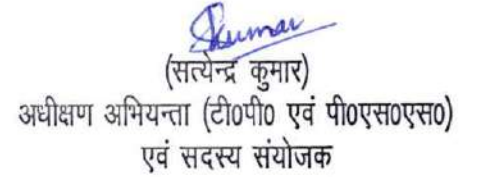 Skumar
(सत्येन्द्र कुमार)
अधीक्षण अभियन्ता (टी0पी0 एवं पी0एस0एस0)
एवं सदस्य संयोजक